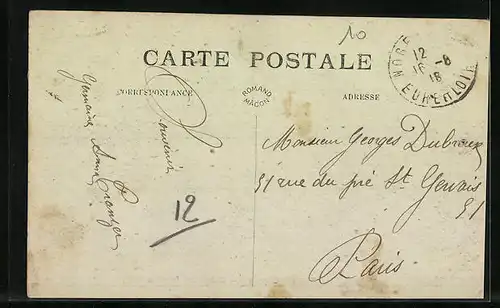 10
CARTE POSTALE
CORRESPONDANCE
ROMAND
MÂCON
ADRESSE
12
16 -8
18
EURE-&-LOIR
Souvenir
Germaine
12
Monsieur Georges Dubreux
51 rue du pré St Gervais
51
Paris